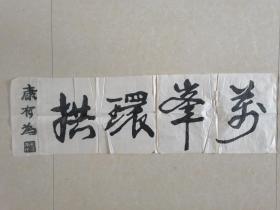 萬峯環拱
康有為